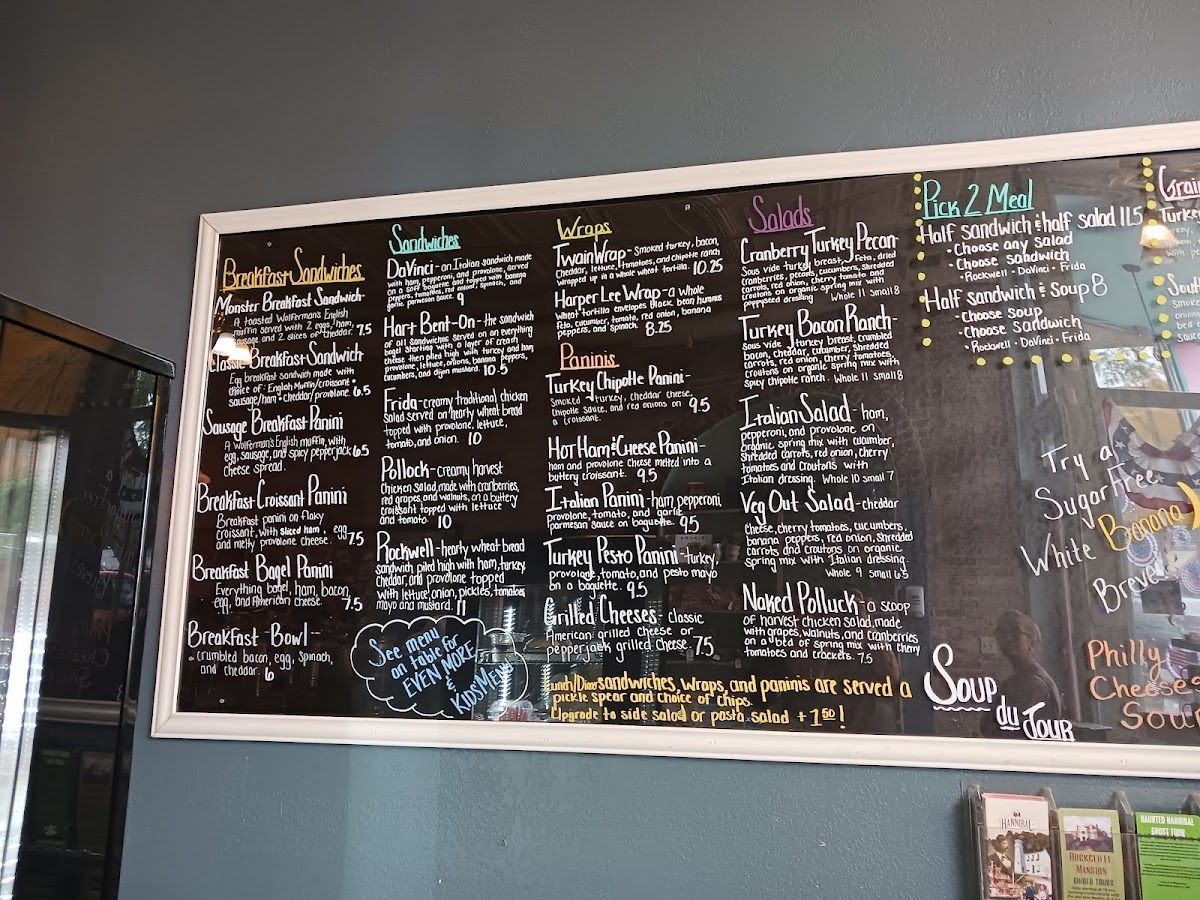 Breakfast Sandwiches
Monster Breakfast Sandwich-
A toasted Wolferman's English
muffin served with 2 eggs, ham,
sausage and 2 slices of cheddar. 7.5
Classic Breakfast Sandwich-
Egg breakfast sandwich made with
choice of: English Muffin/croissant
sausage/ham + cheddar/provolone. 6.5
Sausage Breakfast Panini
A Wolferman's English muffin, with
egg, sausage, and spicy pepperjack 6.5
cheese spread.
Breakfast Croissant Panini
Breakfast panini on flaky
croissant, with sliced ham, egg
and melty provolone cheese. 7.5
Breakfast Bagel Panini
Everything bagel, ham, bacon,
egg, and American cheese. 7.5
Breakfast Bowl--
crumbled bacon, egg, spinach,
and cheddar. 6
Sandwiches
DaVinci-an Italian sandwich made
with ham, pepperoni, and provolone, served
on a soft baguette and topped with banana
peppers, tomatoes, red onion, spinach, and
garlic parmesan sauce. 9
Hart Bent-On-the sandwich
of all sandwiches served on an everything
bagel starting with a layer of cream
cheese then piled high with turkey and ham,
provolone, lettuce, onions, banana peppers,
cucumbers, and dijon mustard. 10.5
Frida-creamy traditional chicken
salad served on hearty wheat bread
topped with provolone, lettuce,
tomato, and onion. 10
Pollock-creamy harvest
chicken salad, made with cranberries,
red grapes, and walnuts, on a buttery
croissant topped with lettuce
and tomato. 10
Rockwell-hearty wheat bread
sandwich piled high with ham, turkey,
cheddar, and provolone topped
with lettuce, onion, pickles, tomatoes,
mayo and mustard. 11
See menu
on table for
EVEN MORE
&
KIDS MENU!
Wraps
Twain Wrap-Smoked turkey, bacon,
cheddar, lettuce, tomatoes, and chipotle ranch
wrapped up in a whole wheat tortilla. 10.25
Harper Lee Wrap-a whole
wheat tortilla envelopes black bean hummus
feta, cucumber, tomato, red onion, banana
peppers, and spinach. 8.25
Paninis
Turkey Chipotle Panini-
Smoked turkey, cheddar cheese,
chipotle sauce, and red onions on 9.5
a croissant.
Hot Ham & Cheese Panini-
ham and provolone cheese melted into a
buttery croissant. 9.5
Italian Panini-ham, pepperoni,
provolone, tomato, and garlic
parmesan sauce on baguette. 9.5
Turkey Pesto Panini-turkey,
provolone, tomato, and pesto mayo
on a baguette. 9.5
Grilled Cheeses-classic
American grilled cheese or
pepperjack grilled cheese. 7.5
Lunch/Dinner sandwiches, wraps, and paninis are served a
pickle spear and choice of chips.
Upgrade to side salad or pasta salad + 1.50!
Salads
Cranberry Turkey Pecan-
Sous vide turkey breast, Feta, dried
cranberries, pecans, cucumbers, shredded
carrots, red onion, cherry tomato and
croutons on organic spring mix with
dressing. Whole 11 Small 8
Turkey Bacon Ranch-
sous vide turkey breast, crumbled
bacon, cheddar, cucumber, shredded
carrots, red onion, cherry tomatoes,
croutons on organic spring mix with
spicy chipotle ranch. Whole 11 small 8
Italian Salad-ham,
pepperoni, and provolone on
organic spring mix with cucumber,
shredded carrots, red onion, cherry
tomatoes and croutons with
Italian dressing. Whole 10 small 7
Veg Out Salad-cheddar
cheese, cherry tomatoes, cucumbers,
banana peppers, red onion, shredded
carrots and croutons on organic
spring mix with Italian dressing.
Whole 9 small 6.5
Naked Polluck-a scoop
of harvest chicken salad, made
with grapes, walnuts, and cranberries
on a bed of spring mix with cherry
tomatoes and crackers. 7.5
Pick 2 Meal
Half sandwich & half salad 11.5
• Choose any salad
• Choose sandwich
• Rockwell • DaVinci • Frida
Half sandwich & soup 8
• Choose soup
• Choose sandwich
• Rockwell • DaVinci • Frida
Try a
Sugar Free
White Banana
Breve
Soup
du Jour
Philly
Cheese
Sou
HANNIBAL
ROCKCLIFFE
MANSION
GUIDED TOURS
HAUNTED HANNIBAL
GHOST TOUR